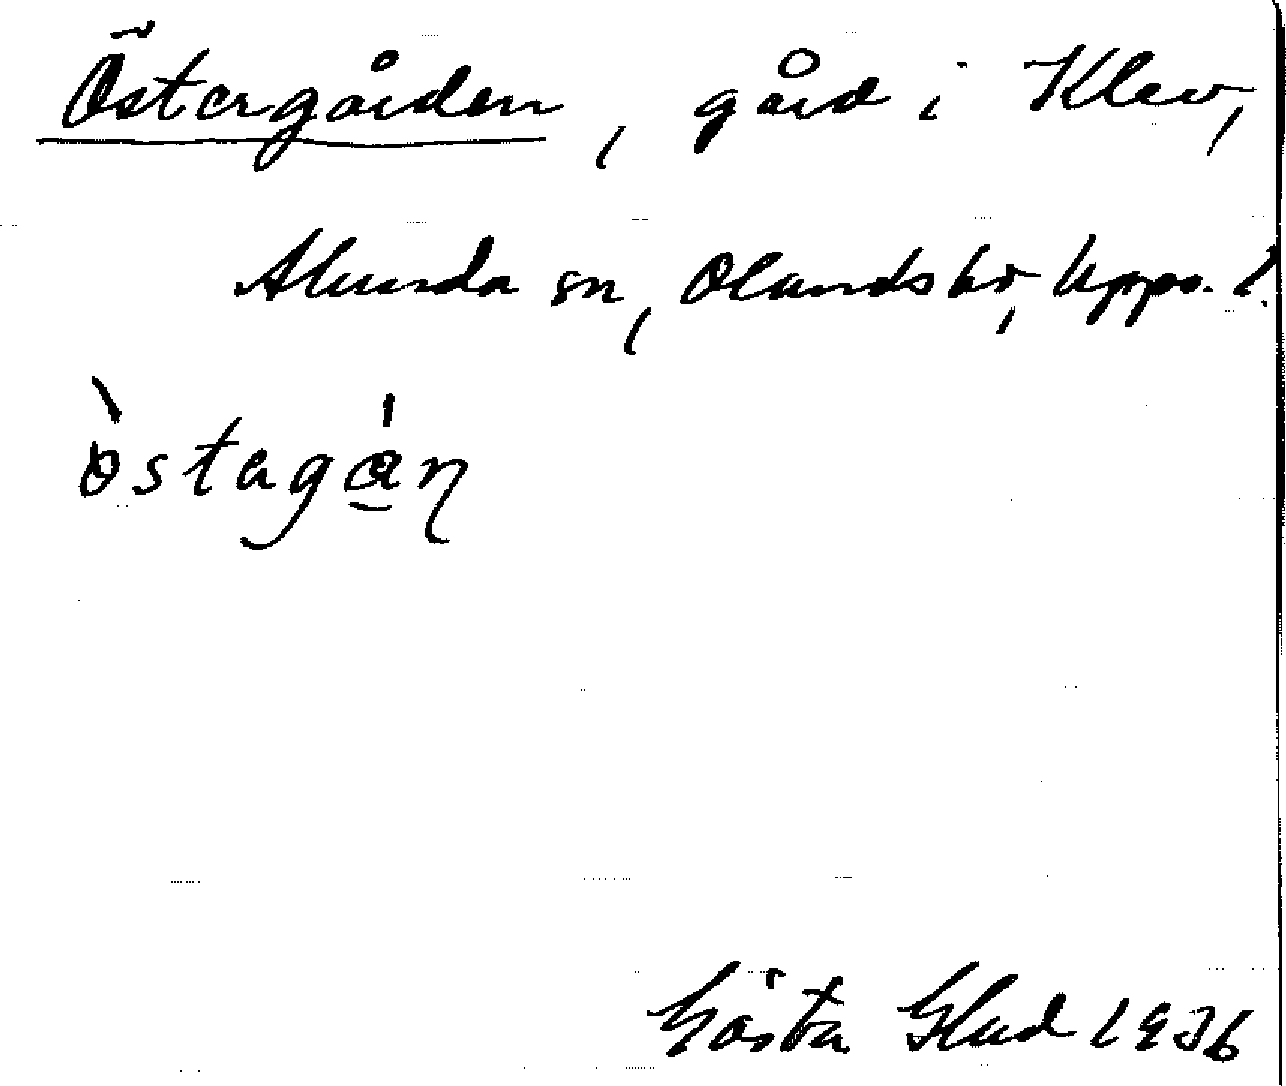 Östergården, gård i Klev,
Alunda sn, Olands hd, Upps. l.
östagån
Gösta Glad 1936